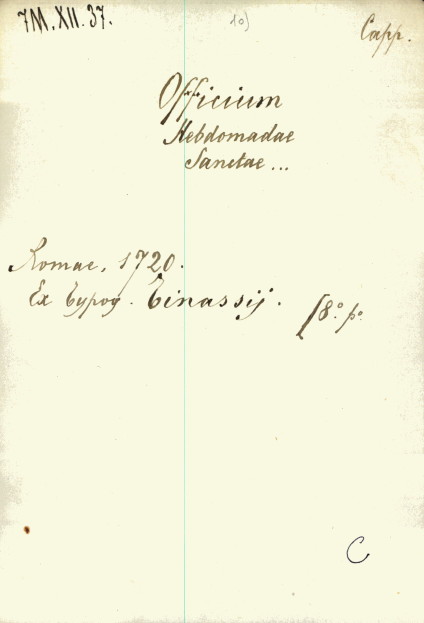 7M.XII.37.
10)
Capp.
Officium
Hebdomadae
Sanctae...
Romae, 1720.
Ex Typog. Tinassij.
[8.º p.º
C